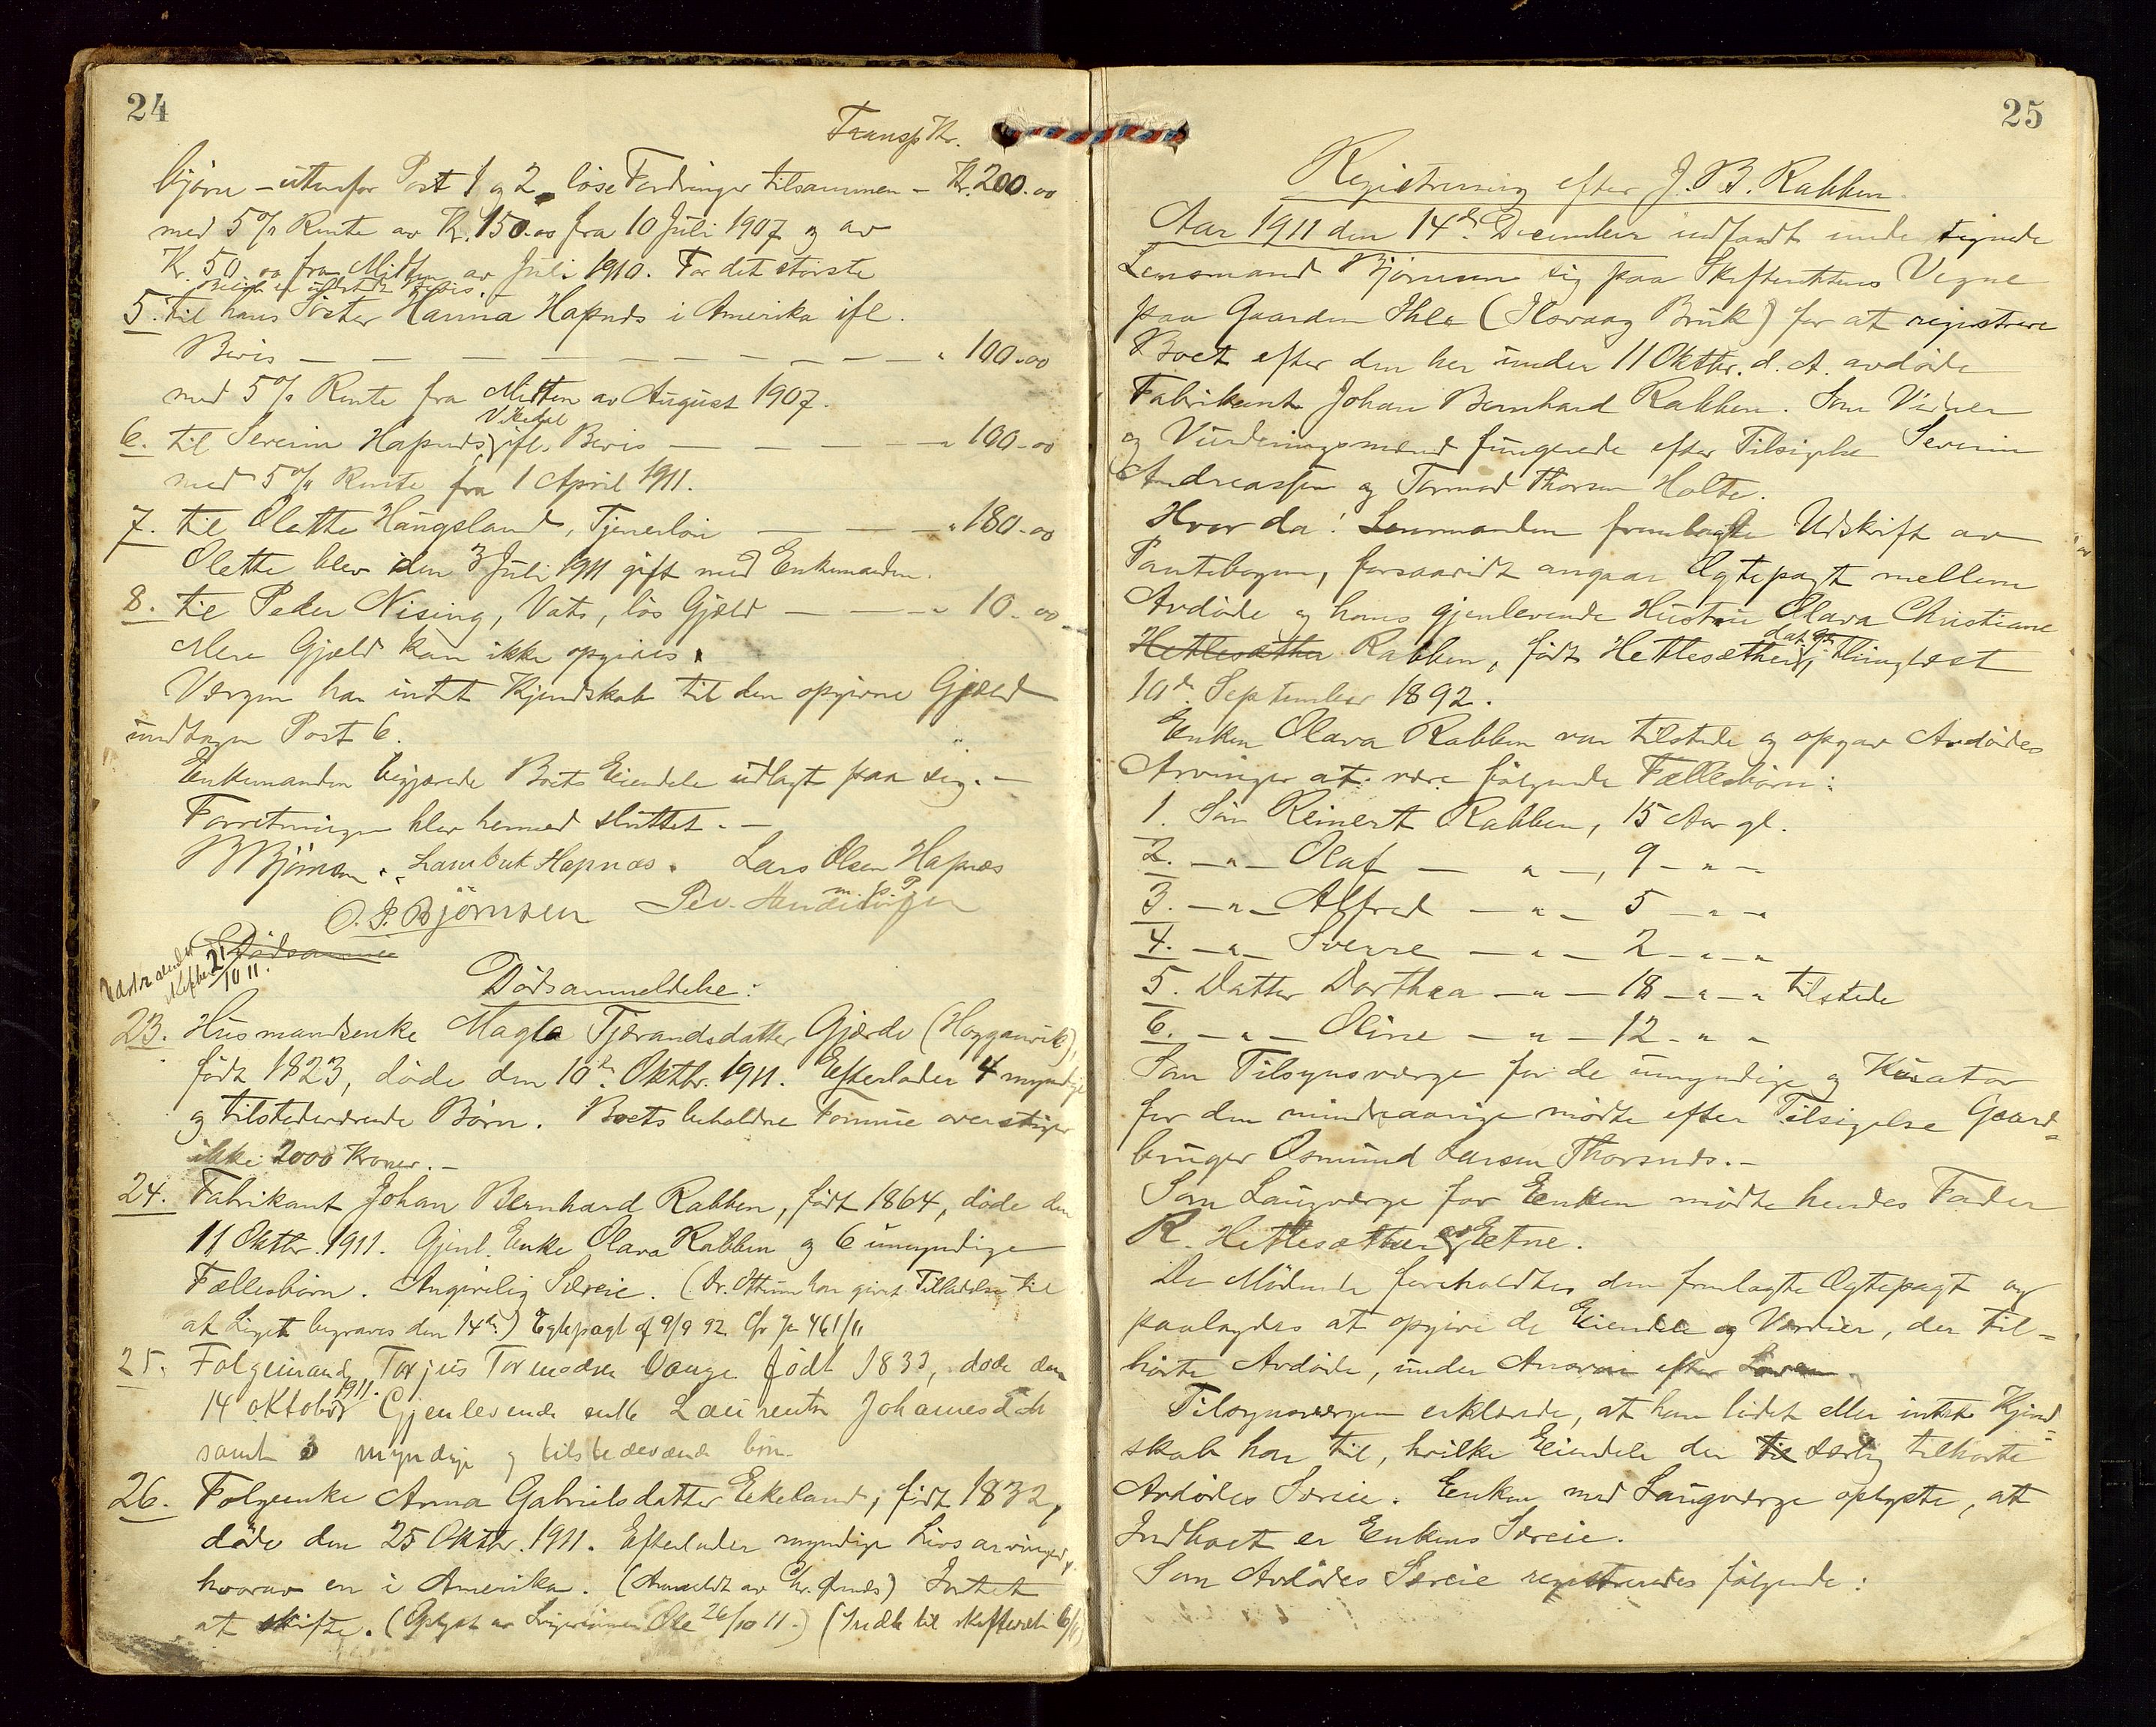 24
Transp Kr.
bjørn - utenfor Post 1 og 2, løse Fordringer tilsammen - Kr. 200.00
med 5% Rente av Kr. 150.00 fra 10 Juli 1907 og av
Kr. 50.00 fra Midten av Juli 1910. For det største
5. til hans Søster Hanna Hapnæs i Amerika ifl.
Bevis — — — — — — — — — " 100.00
med 5% Rente fra Midten av August 1907.
Vikedal
6. til Severin Hapnæs, ifl. Bevis — — — — " 100.00
med 5% Rente fra 1 April 1911.
7. til Olette Haugsland, Tjenerløn — — — " 180.00
Olette blev den 3 Juli 1911 gift med Enkemanden.
8. til Peder Nising, Vats, løs Gjæld — — — " 10.00
Mere Gjæld kan ikke opgives.
Værgen har intet Kjendskab til den opgivne Gjæld
undtagen Post 6.
Enkemanden begjærede Boets Eiendele udlagt paa sig. —
Forretningen blev hermed sluttet. —
B Bjørnsen. Lambert Hapnæs. Lars Olsen Hapnæs
m. p. P.
O. P. Bjørnsen
Dødsanme
21/10 11.
Dødsanmeldelse:
23. Husmandsenke Magla Tjærandsdatter Gjerde (Hogganvik),
født 1823, døde den 10de Oktbr. 1911. Efterlader 4 myndige
og tilstedeværende Børn. Boets beholdne Formue overstiger
ikke 2000 Kroner. —
24. Fabrikant Johan Bernhard Rabben, født 1864, døde den
11 Oktbr. 1911. Gjenl. Enke Olava Rabben og 6 umyndige
Fællesbørn. Angivelig Særeie. (Dr. har givet Tilladelse til
at Liget begraves den 14de) Egtepagt af 9/9 92. Cfr Jr 461/11
25. Folgemand Torjus Tormodsen Vange født 1833, døde den
14 oktober 1911. Gjenlevende enke Laurentse Johannesdtr
samt 3 myndige og tilstedeværende børn.
26. Folgeenke Anna Gabrielsdatter Eikeland, født 1832,
døde den 25 Oktbr. 1911. Efterlader myndige Livsarvinger,
hvorav en i Amerika. (Anmeldt av Chr. ) Intet
at skifte. (Oplyst av Ole 26/10 11.) (Indb til skifteret 6/11)
25
Registrering efter J. B. Rabben.
Aar 1911 den 14de December indfandt undertegnede
Lensmand Bjørnsen sig paa Skifterettens Vegne
paa Gaarden Ihle (Ilsvaag Bruk) for at registrere
Boet efter den her under 11 Oktbr. d. A. avdøde
Fabrikant Johan Bernhard Rabben. Som Vidner
og Vurderingsmænd fungerede efter Tilsigelse Severin
Andreassen og Tormod Thorsen Holte.
Hvor da! Lensmanden fremlagte Udskrift av
Pantebogen, forsaavidt angaar Ægtepagt mellem
Avdøde og hans gjenlevende Hustru Olava Christiane
Hettesæther Rabben, født Hettesæther, thinglæst
10de September 1892.
Enken Olava Rabben var tilstede og opgav Avdødes
Arvinger at være følgende Fællesbørn:
1. Søn Reinert Rabben, 15 Aar gl.
2. — " — Olaf — " —, 9 — " —
3. — " — Alfred — " — 5 — " —
4. — " — Sverre — " — 2 — " —
5. Datter Dorthea — " — 18 — " — tilstede
6. — " — Oline — " — 12 — " —
Som Tilsynsværge for de umyndige og Kurator
for den mindreaarige mødte efter Tilsigelse Gaard-
bruger Osmund Larsen Thorsnæs. —
Som Laugværge for Enken mødte hendes Fader
R. Hettesæther av Etne.
De Mødende foreholdtes den fremlagte Ægtepagt og
paalagdes at opgive de Eiendele og Værdier, der til-
hørte Avdøde, under Ansvar efter Loven.
Tilsynsværgen erklærede, at han lidet eller intet Kjend-
skab har til, hvilke Eiendele der til særlig tilhørte
Avdødes Særeie. Enken med Laugværge oplyste, at
Indboet er Enkens Særeie.
Som Avdødes Særeie registreredes følgende: